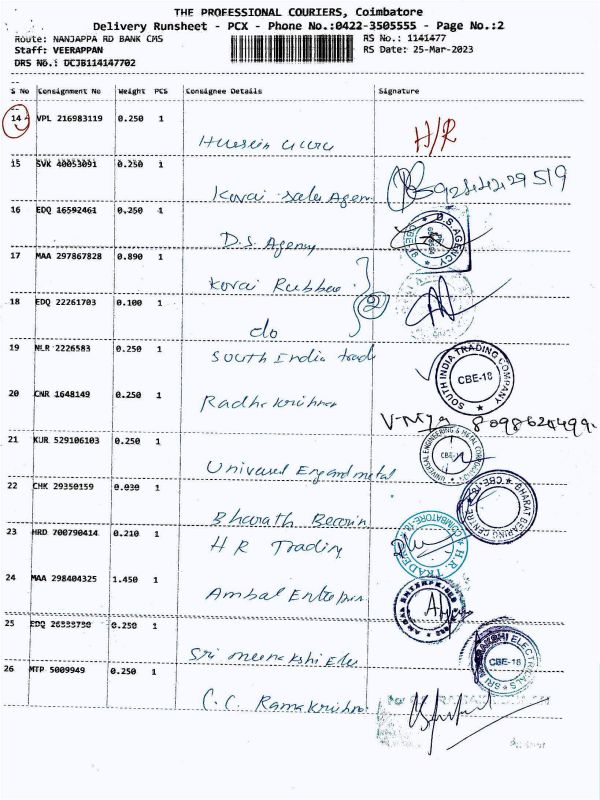 THE PROFESSIONAL COURIERS, Coimbatore
Delivery Runsheet - PCX - Phone No.:0422-3505555 - Page No.:2
Route: NANJAPPA RD BANK CMS
RS No.: 1141477
Staff: VEERAPPAN
RS Date: 25-Mar-2023
DRS No.: DCJB114147702
S No Consignment No Weight PCS Consignee Details Signature
14 VPL 216983119 0.250 1
Hussein H/R
15 SVK 40053091 0.250 1
Kovai Sales Agen
16 EDQ 16592461 0.250 1
D.S. Agency
D.S. AGENCY
17 MAA 297867828 0.890 1
Kovai Rubber
2
18 EDQ 22261703 0.100 1
do
19 NLR 2226583 0.250 1
South India trad
SOUTH INDIA TRADING COMPANY CBE-18
20 CNR 1648149 0.250 1
Radhakrishnan
21 KUR 529106103 0.250 1
Universal Eng and metal
UNIVERSAL ENGINEERING & METAL
22 CHK 29350159 0.030 1
Bharath Bearin
BHARAT BEARING CENTRE CBE-18
23 HRD 700790414 0.210 1
H R Trading
H.R. TRADERS COIMBATORE-18
24 MAA 298404325 1.450 1
Ambal Enterprin
AMBAL ENTERPRISES
25 EDQ 26333730 0.250 1
Sri meenakshi Ele
SRI MEENAKSHI ELECTRICALS CBE-18
26 MTP 5009949 0.250 1
C.C. Ramakrishna